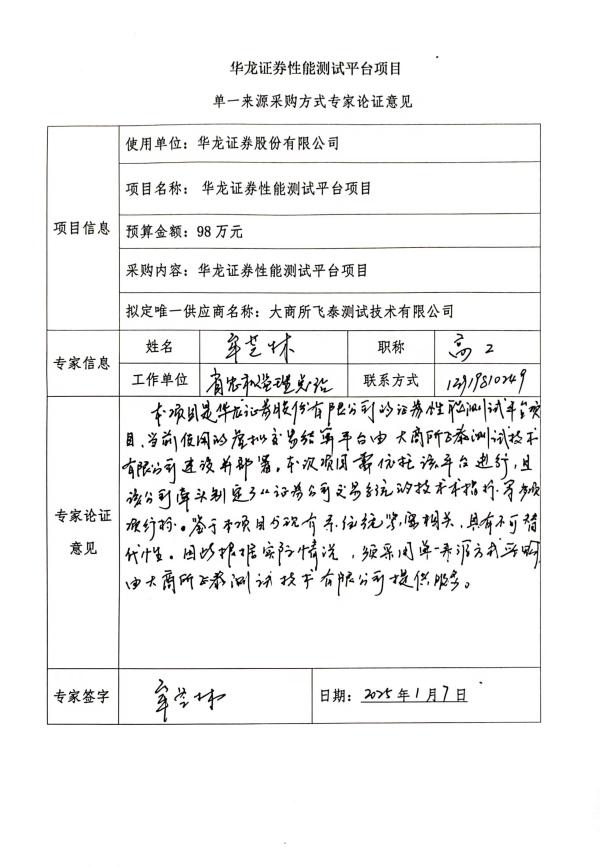 华龙证券性能测试平台项目
单一来源采购方式专家论证意见
项目信息
使用单位：华龙证券股份有限公司
项目名称： 华龙证券性能测试平台项目
预算金额：98万元
采购内容：华龙证券性能测试平台项目
拟定唯一供应商名称：大商所飞泰测试技术有限公司
专家信息
姓名
职称
高工
工作单位
联系方式
专家论证
意见
本项目是华龙证券股份有限公司的证券性能测试平台项
目，当前使用的虚拟交易结算平台由大商所飞泰测试技术
有限公司建设并部署。本次项目需依托该平台进行，且
该公司牵头制定了《证券公司交易系统的技术指标》等多项
行标。鉴于本项目与现有系统紧密相关，具有不可替
代性。因此根据实际情况，须采用单一来源方式采购，
由大商所飞泰测试技术有限公司提供服务。
专家签字
日期：2025年1月7日